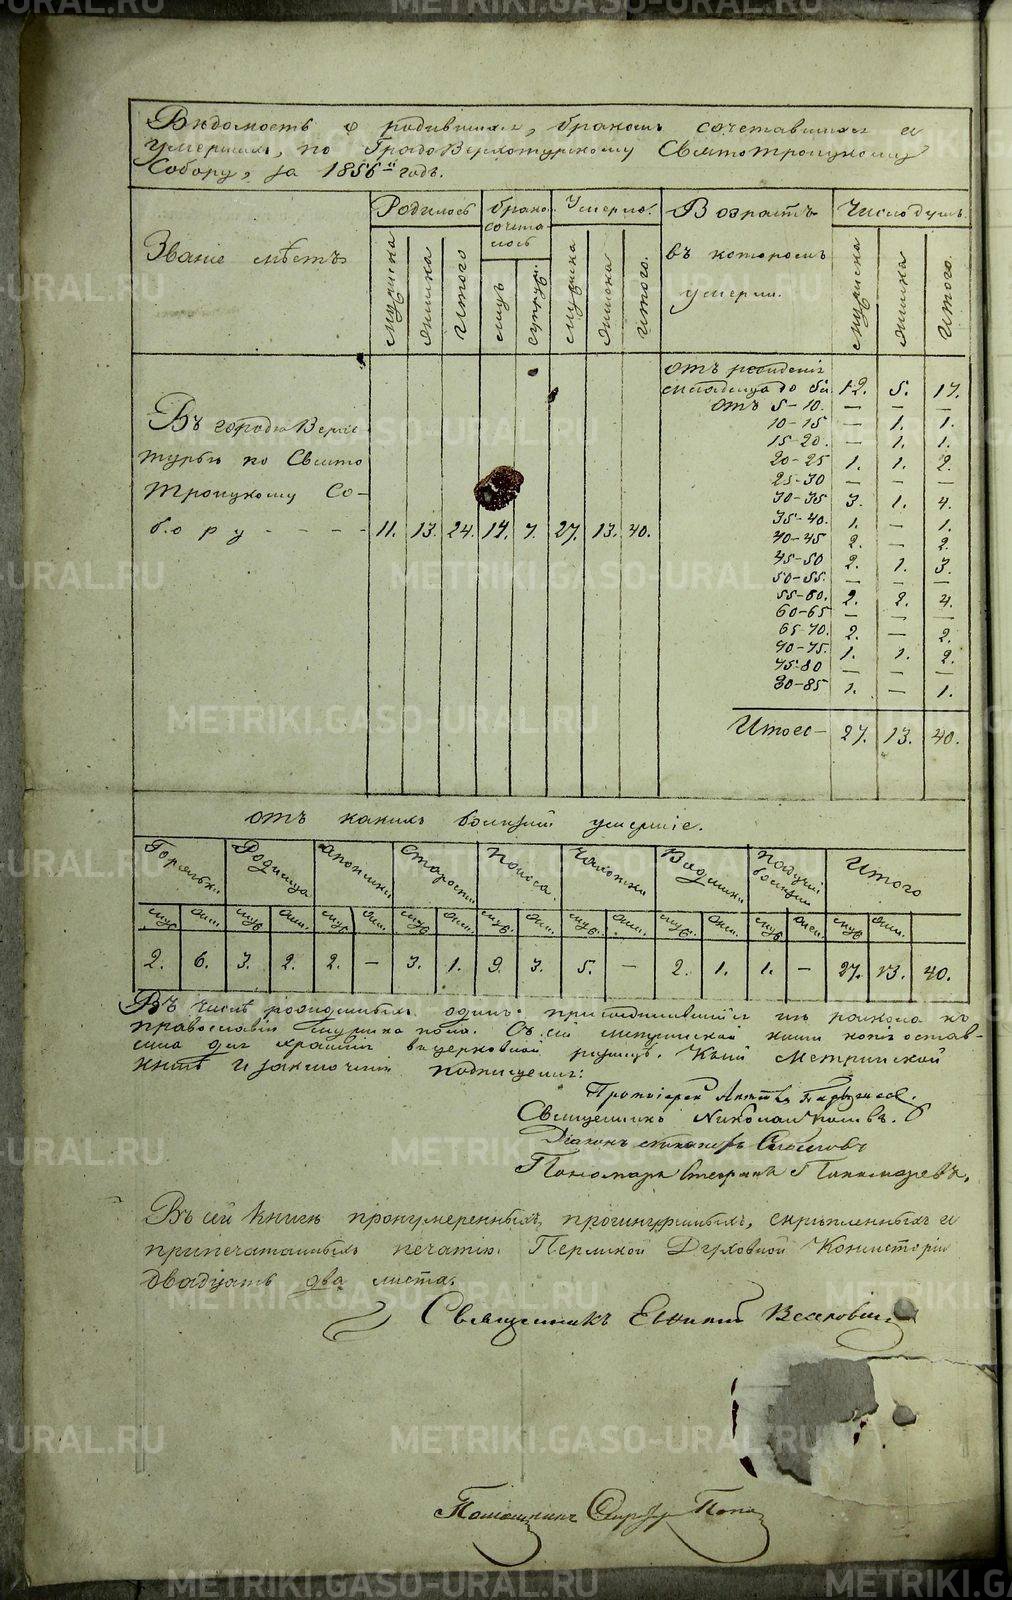 Вѣдомость о родившихся, бракомъ сочетавшихся и
умершихъ, по Градо Верхотурскому Свято Троицкому
Собору, за 1856й годъ.
Званіе мѣстъ
Родилось
брако
сочета
лось
Умерло.
Возрастъ
въ которомъ
умерли.
Число душъ
мужеска
женска
Итого
лицъ
супруж.
мужеска
женска
Итого.
мужеска
женска
Итого.
Въ городѣ Верхо
турьѣ по Свято
Троицкому Со-
бору - - - -
11. 13. 24. 14. 7. 27. 13. 40.
отъ рожденія
младенца до 5и 12. 5. 17.
отъ 5-10. — — —
10-15 — 1. 1.
15-20. — 1. 1.
20-25 1. 1. 2.
25-30 — — —
30-35 3. 1. 4.
35-40. 1. — 1.
40-45 2. — 2.
45-50 2. 1. 3.
50-55. — — —
55-60. 2. 2. 4.
60-65 — — —
65-70. 2. — 2.
70-75. 1. 1. 2.
75-80 — — —
80-85 1. — 1.
Итого - 27. 13. 40.
отъ какихъ болѣзней умершіе.
Горячки Родимца Апоплексіи Старости Поноса. Чахотки Водянки Падучей болѣзни Итого
муж. жен. муж. жен. муж. жен. муж. жен. муж. жен. муж. жен. муж. жен. муж. жен. муж. жен.
2. 6. 3. 2. 2. — 3. 1. 9. 3. 5. — 2. 1. 1. — 27. 13. 40.
Въ числѣ родившихся одинъ присоединившійся изъ раскола къ
православію мужеска пола. Съ сей метрической книги копія остав-
лена для храненія въ церковной ризницѣ. Къ сей Метрической
книгѣ и заключенія подписуемся:
Протоіерей
Священникъ Николай Поповъ.
Діаконъ
Пономарь Стефанъ Пономаревъ.
Въ сей книгѣ пронумеренныхъ, прошнурованныхъ, скрѣпленныхъ и
припечатанныхъ печатью Пермской Духовной Консисторіи
двадцать два листа.
Священникъ Евфимій
METRIKI.GASO-URAL.RU